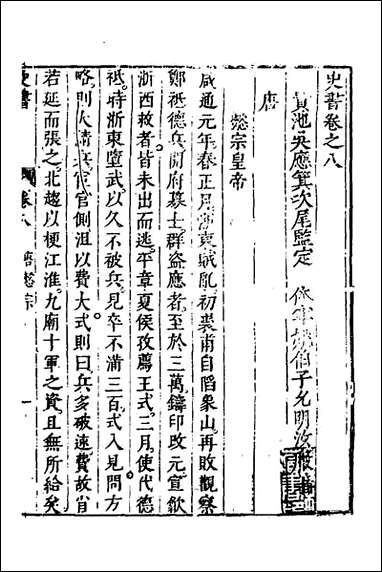 史書卷之八
貴池吳應箕次尾監定 休寧 伯子允明
唐
懿宗皇帝
咸通元年春正月浙東賊亂初裘甫自陷象山再敗觀察
鄭祗德兵開府募士群盜應者至於三萬鑄印改元宣歙
浙西救者皆未出而逃平章夏侯孜薦王式三月使代德
祗時浙東墮武以久不被兵見卒不滿三百式入見問方
略則大請兵宦官側沮以費大式則曰兵多破速費故省
若延而張之北越以梗江淮九廟十軍之資且無所給矣
史書 卷八 唐懿宗 一